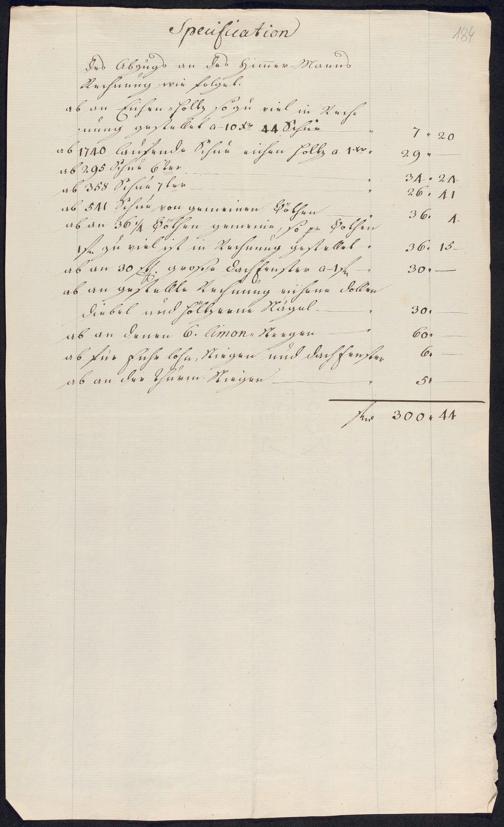 184
Specification
des Abzugs an des Zimer Manns
Rechnung wie folget.
ab an Eichen holtz so zu viel in Rech-
nung gestellet a 10 xr 44 Schue 7 • 20
ab 1740 laufende Schue eichen holtz a 1 xr. 29 •
ab 295 Schue 6ter 34 • 24
ab 358 Schue 7ter 26 • 41
ab 541 Schue von gemeinen 36 • 4
ab an 36 1/4 gemeine so pr
1 fr zu viel ist in Rechnung gestellet • 36 • 15
ab an 30 st. grosse Dachfenster a 1 fr 30 • —
ab an gestellte Rechnung eichene Dollen
Diebel und höltzerne Nägel 30 • —
ab an denen 6. limon Stiegen 60 • —
ab für fuhr lohn, Stiegen und dachfenster 6 • —
ab an der Thurm Stiegen 5 • —
300 • 44